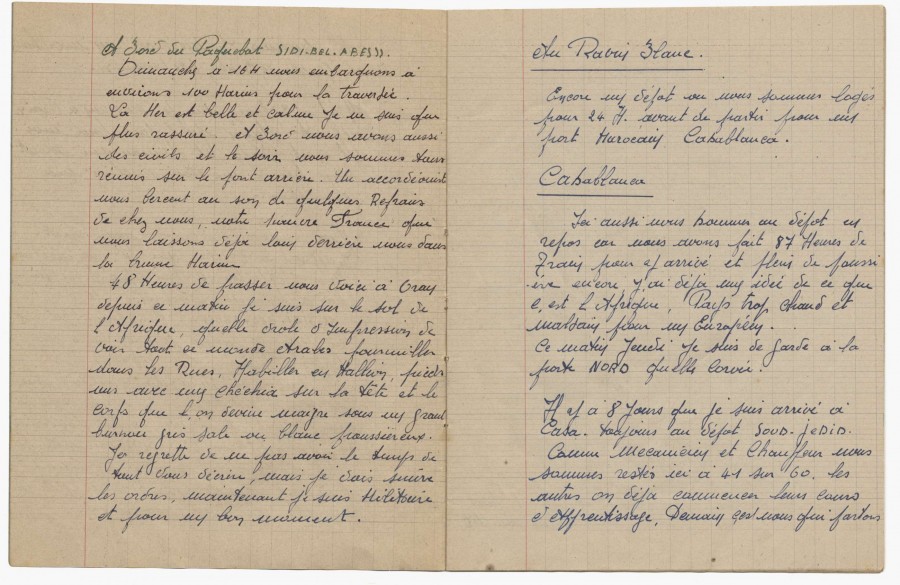 A Bord du Paquebot SIDI-BEL-ABESS.
Dimanche à 16H nous embarquons à
environs 100 Marins pour la traversée.
La Mer est belle et calme je ne suis que
plus rassuré. A Bord nous avons aussi
des civils et le soir nous sommes tous
réunis sur le pont arrière. Un accordéoniste
nous bercent au son de quelques Refrains
de chez nous, notre pauvre France que
nous laissons déja loin derrière nous dans
la brume Marine
48 Heures de passer nous voici à Oran
depuis ce matin je suis sur le sol de
l'Afrique, quelle drole d'Impression de
voir tout ce monde Arabes fourmiller
dans les Rues, Habiller en Haillon, pieds
nus avec une chéchia sur la tête et le
corps que l,on devine maigre sous un grand
burnou gris sale ou blanc poussiéreux.
Je regrette de ne pas avoir le temps de
tout vous décrire, mais je dois suivre
les ordres, maintenant je suis Militaire
et pour un bon moment.
Au Ravin Blanc.
Encore un dépot ou nous sommes logés
pour 24 H. avant de partir pour un
port Marocain Casablanca.
Casablanca
Ici aussi nous sommes au dépot en
repos car nous avons fait 87 Heures de
Train pour y arrivé et plein de poussi
ère encore, j'ai déja une idée de ce que
c,est l'Afrique, Pays trop chaud et
malsain pour un Européen.
Ce matin Jeudi je suis de garde à la
porte NORD quelle Corvée.
Il y à 8 Jours que je suis arrivé à
Casa. toujours au dépôt SOUD-JeDID.
Comme Mecaniciens et Chauffeur nous
sommes restés ici à 41 sur 60. les
autres on déja commencer leurs cours
d'Apprentissage, Demain çest nous qui partons